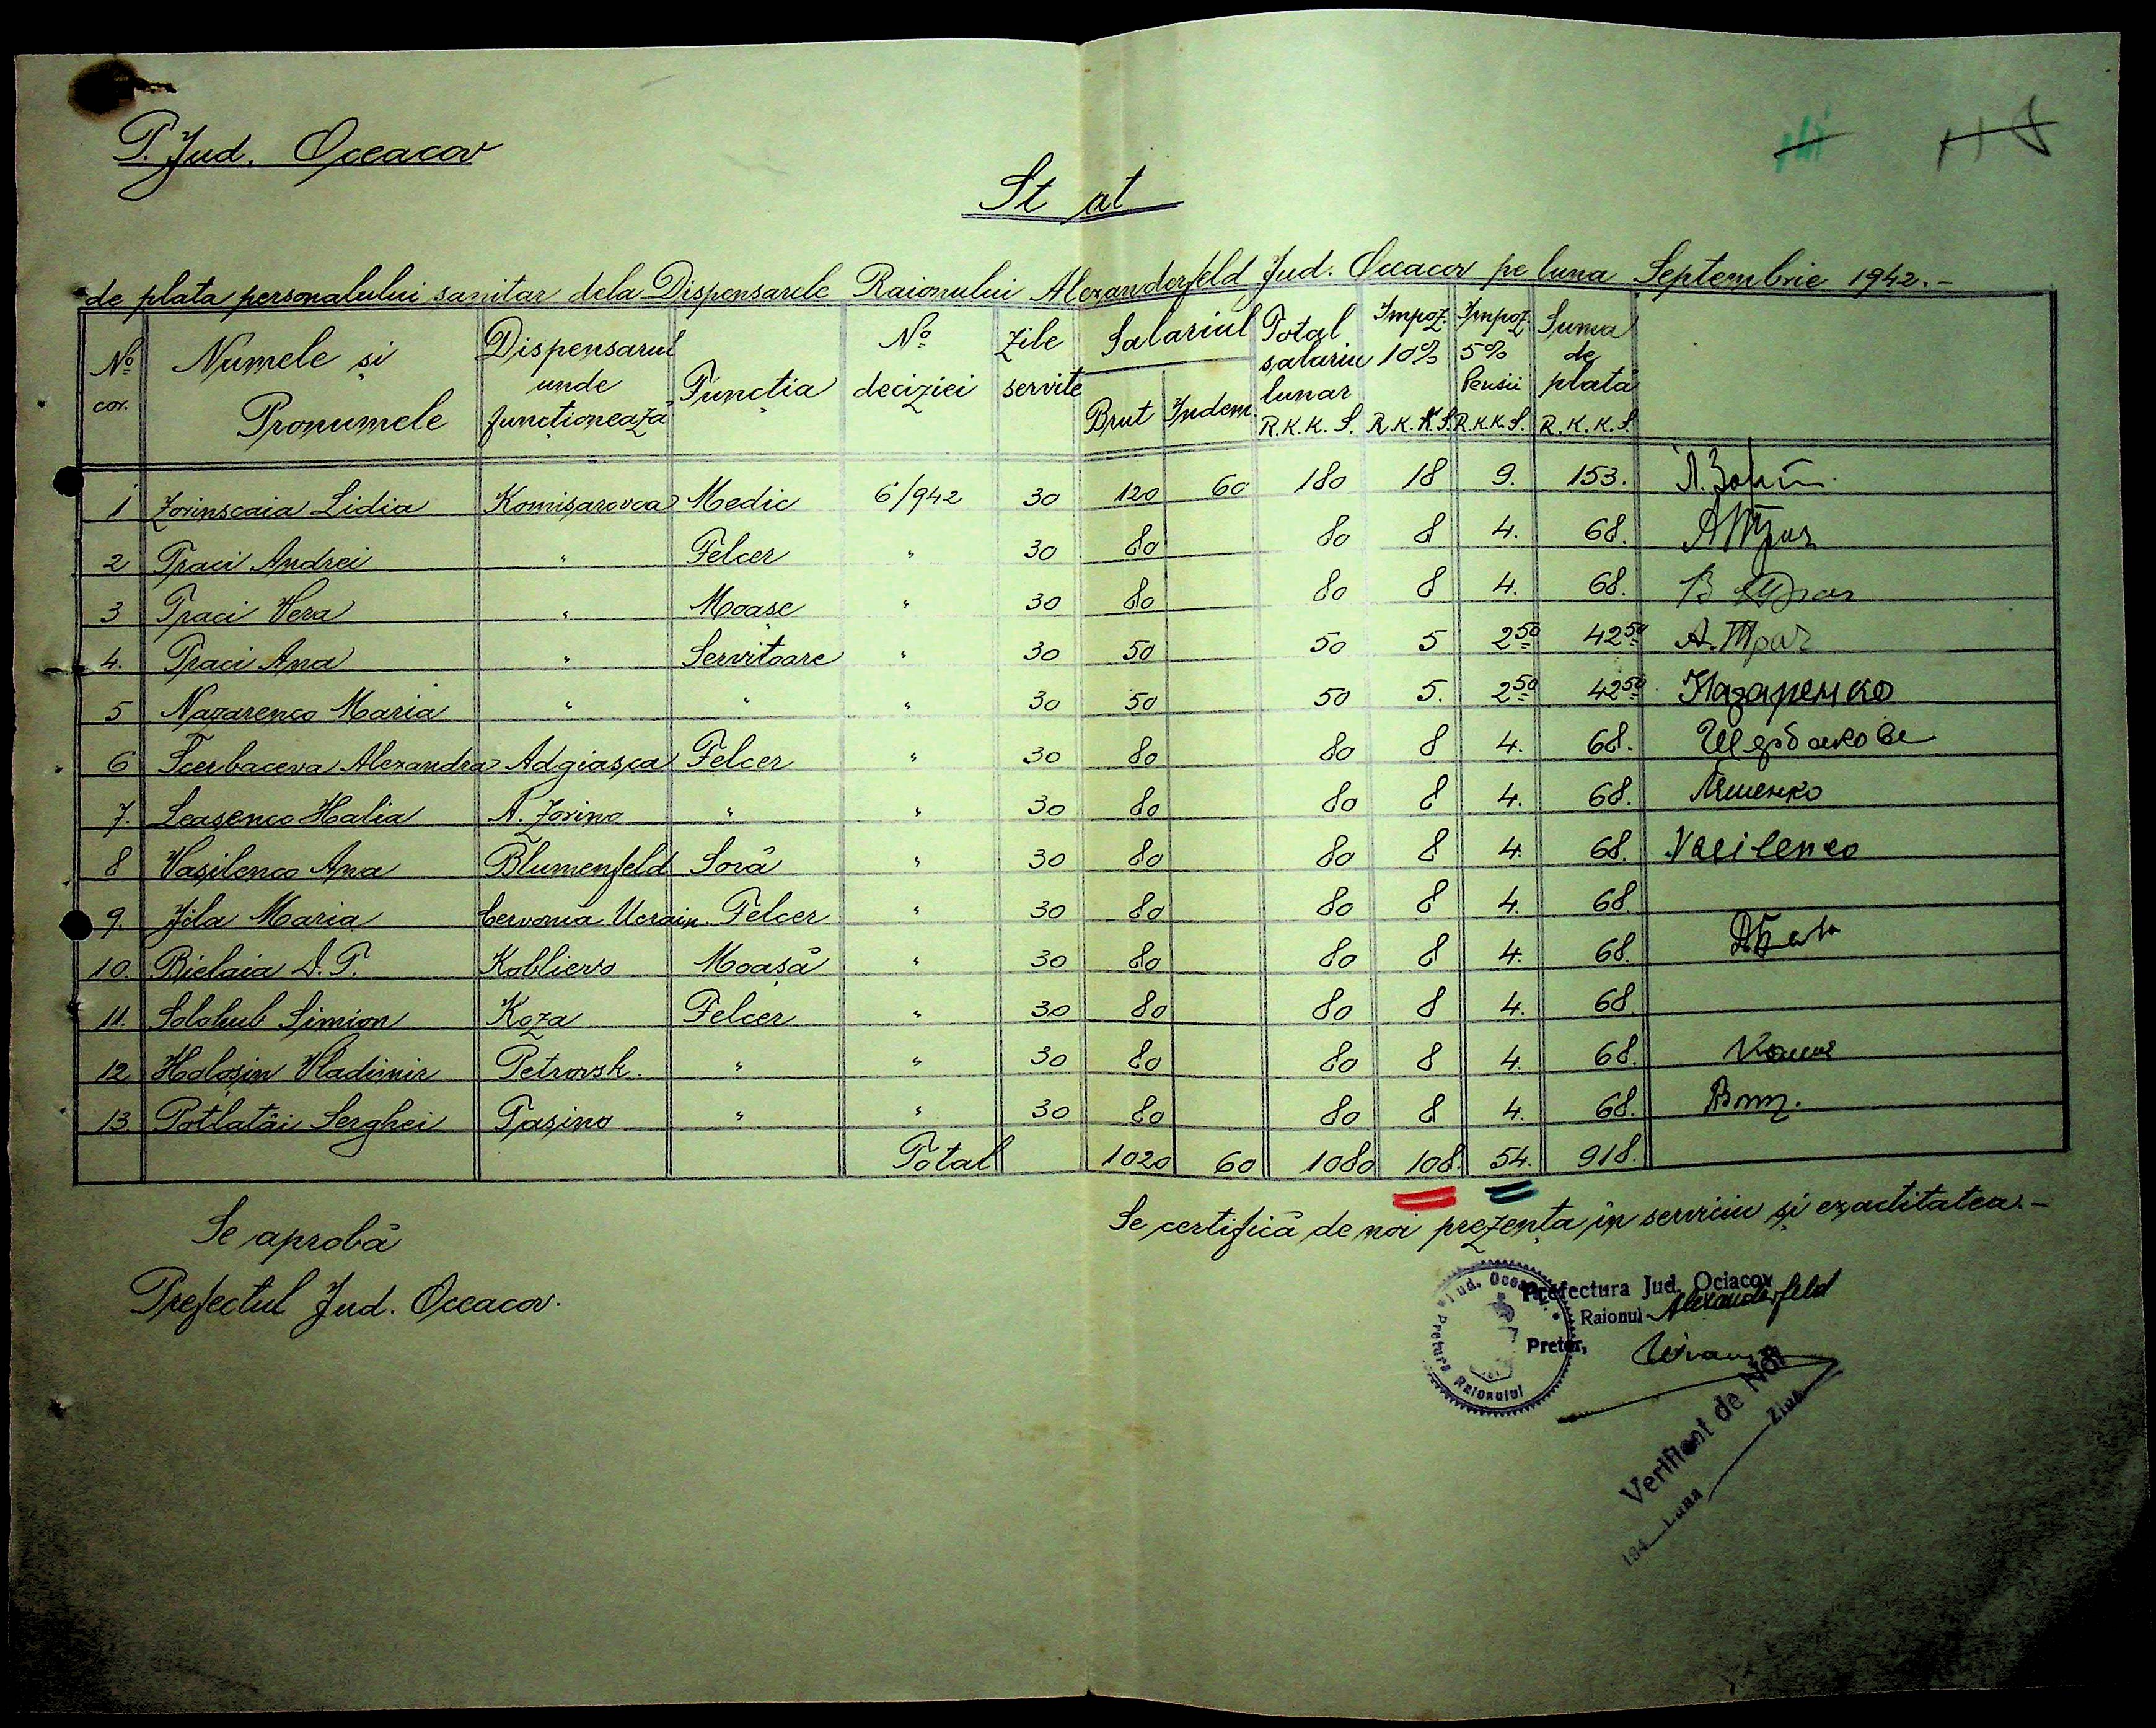 P. Jud. Oceacov
Stat
de plata personalului sanitar dela Dispensarele Raionului Alexanderfeld Jud. Oceacov pe luna Septembrie 1942.-
No cor. Numele și Pronumele Dispensarul unde funcționează Funcția No deciziei Zile servite Salariul Brut Indem. Total salariu lunar R.K.K.S. Impoz. 10% R.K.K.S. Impoz. 5% Pensii R.K.K.S. Suma de plată R.K.K.S.
1 Zorinscaia Lidia Komișarovca Medic 6/942 30 120 60 180 18 9. 153.
2 Traci Andrei " Felcer " 30 80 80 8 4. 68.
3 Traci Vera " Moașe " 30 80 80 8 4. 68.
4. Traci Ana " Servitoare " 30 50 50 5 2 50 42 50 А. Трач
5 Nazarenco Maria " " " 30 50 50 5. 2 50 42 50 Назаренко
6 Scerbaceva Alexandra Adgiasca Felcer " 30 80 80 8 4. 68. Щербакова
7. Leașenco Halia A. Zorino " " 30 80 80 8 4. 68. Ляшенко
8 Vasilenco Ana Blumenfeld Soră " 30 80 80 8 4. 68. Vasilenco
9. Jila Maria Cervonia Ucrain. Felcer " 30 80 80 8 4. 68.
10. Bielaia D. T. Koblievo Moașă " 30 80 80 8 4. 68.
11. Solohub Simion Koza Felcer " 30 80 80 8 4. 68.
12 Haloșin Vladimir Petrovsk. " " 30 80 80 8 4. 68.
13 Potlatâi Serghei Tașino " " 30 80 80 8 4. 68.
Total 1020 60 1080 108. 54. 918.
Se aprobă
Prefectul Jud. Oceacov.
Se certifică de noi prezența în serviciu și exactitatea.-
Prefectura Jud. Ociacov
Raionul Alexanderfeld
Pretor,
Pretura Raionului
Verificat de Noi
194 Luna Ziua